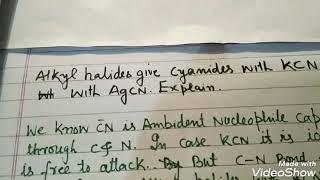 Alkyl halides give Cyanides with KCN
with AgCN. Explain.
We know C̄N is Ambident Nucleophile cap
through C & N. In case KCN it is io
is free to attack. By But C-N Bond
Made with
VideoShow